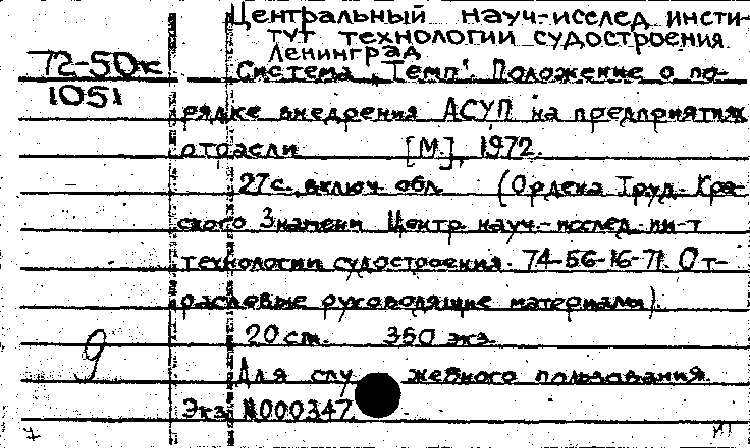 Центральный науч-исслед инсти-
тут технологии судостроения.
Ленинград
72-50к
1051
Система „Темп". Положение о по-
рядке внедрения АСУП на предприятиях
отрасли [М], 1972.
27с. включ. обл. (Ордена Труд. Кра-
сного Знамени Центр. науч.-исслед. ин-т
технологии судостроения. 74-56-16-71. От-
раслевые руководящие материалы).
20 см. 350 экз.
9
Для служебного пользования.
Экз. №000347.